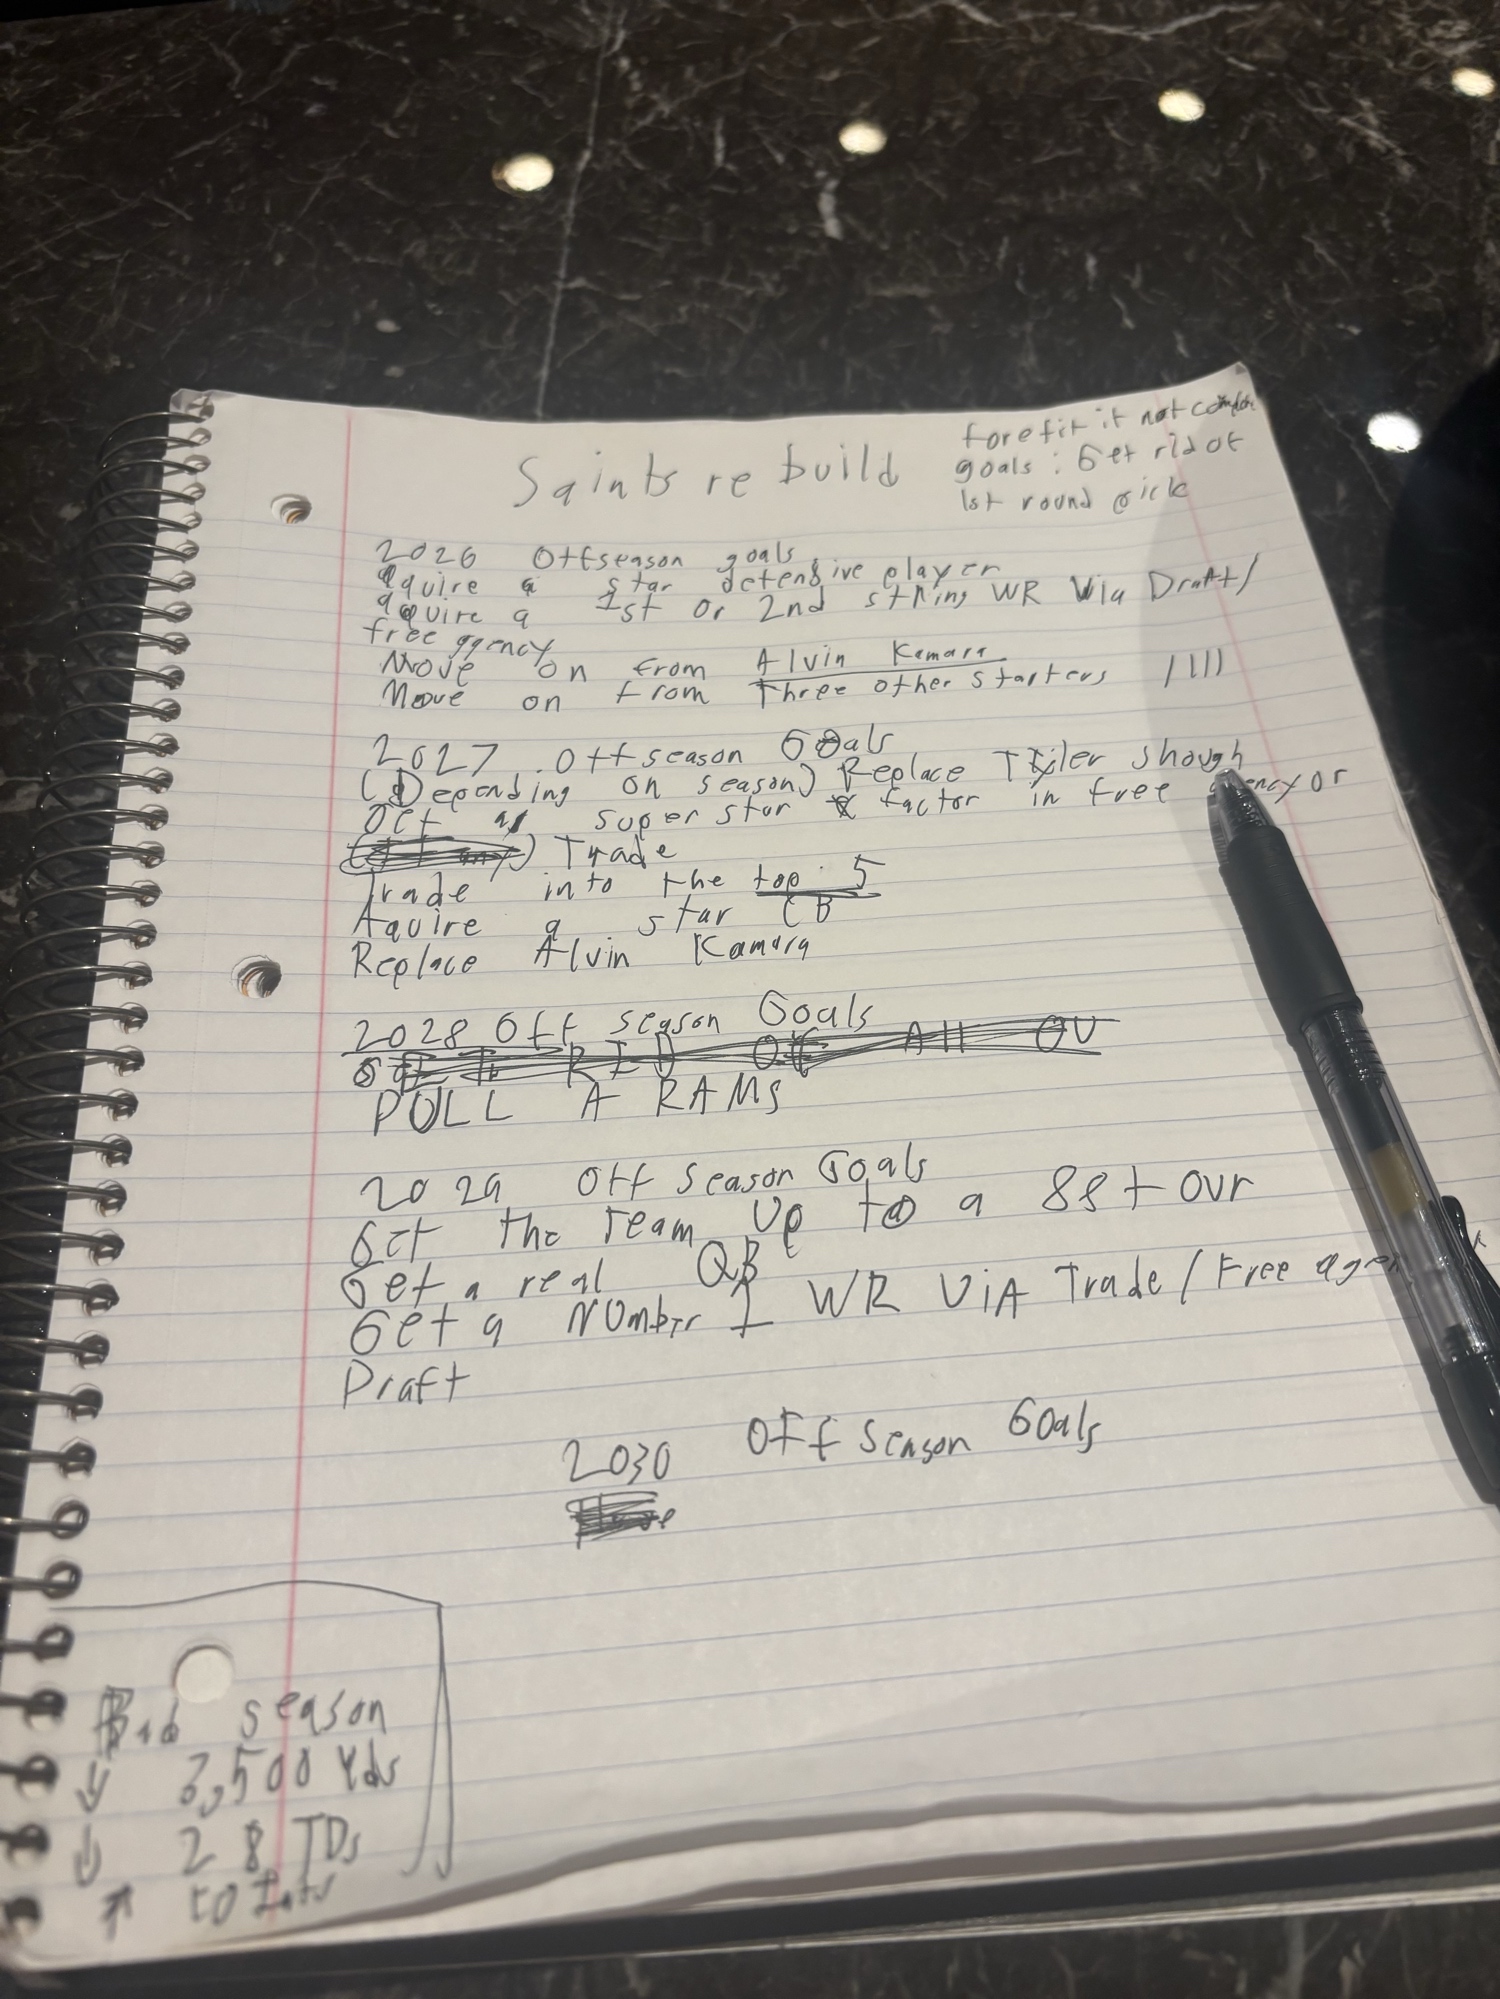 Saints rebuild
forefit if not
goals: Get rid of
1st round pick
2026 Offseason goals
Aquire a star defensive player
aquire a 1st or 2nd string WR Via Draft/
free agency
Move on from Alvin Kamara
Move on from Three other starters ||||
2027 Offseason Goals
(Depending on season) Replace Tyler Shough
Get a superstar X factor in free agency or
Trade
Trade into the top 5
Aquire a star CB
Replace Alvin Kamara
2028 Off season Goals
PULL A RAMS
2029 Off season Goals
Get the Team Up to a 88+ ovr
Get a real QB
Get a Number 1 WR ViA Trade/Free agen
Draft
2030 Off season Goals
Bad season
↓ 3,500 Yds
↓ 28 TDs
↑ 10 Ints